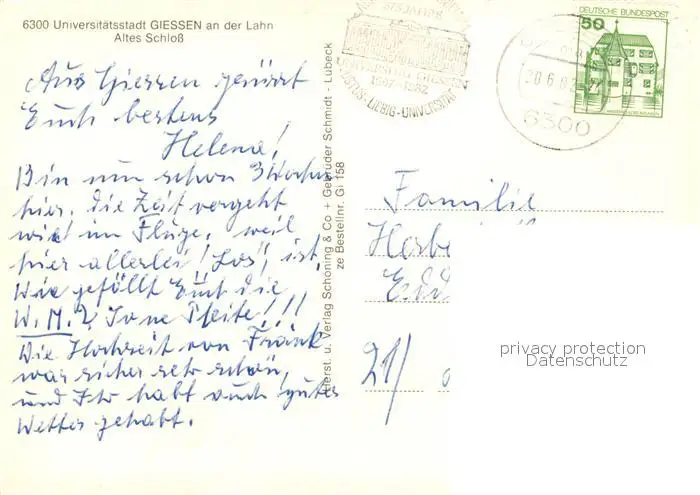 6300 Universitätsstadt GIESSEN an der Lahn
Altes Schloß
Aus Giessen grüsst
Euch bestens
Helena!
Bin nun schon 3 Wochen
hier. die Zeit vergeht
wie im Fluge, weil
hier allerlei "Los" ist,
Wie gefällt Euch die
W.M.? So ne Pleite!!!
Die Hochzeit von Frank
war sicher sehr schön,
und Ihr habt auch gutes
Wetter gehabt.
Herst. u. Verlag Schöning & Co + Gebrüder Schmidt - Lübeck
ze Bestellnr. Gi 158
375 JAHRE
1607-1982
JUSTUS-LIEBIG-UNIVERSITÄT
6300
DEUTSCHE BUNDESPOST
50
Familie
21/
privacy protection
Datenschutz